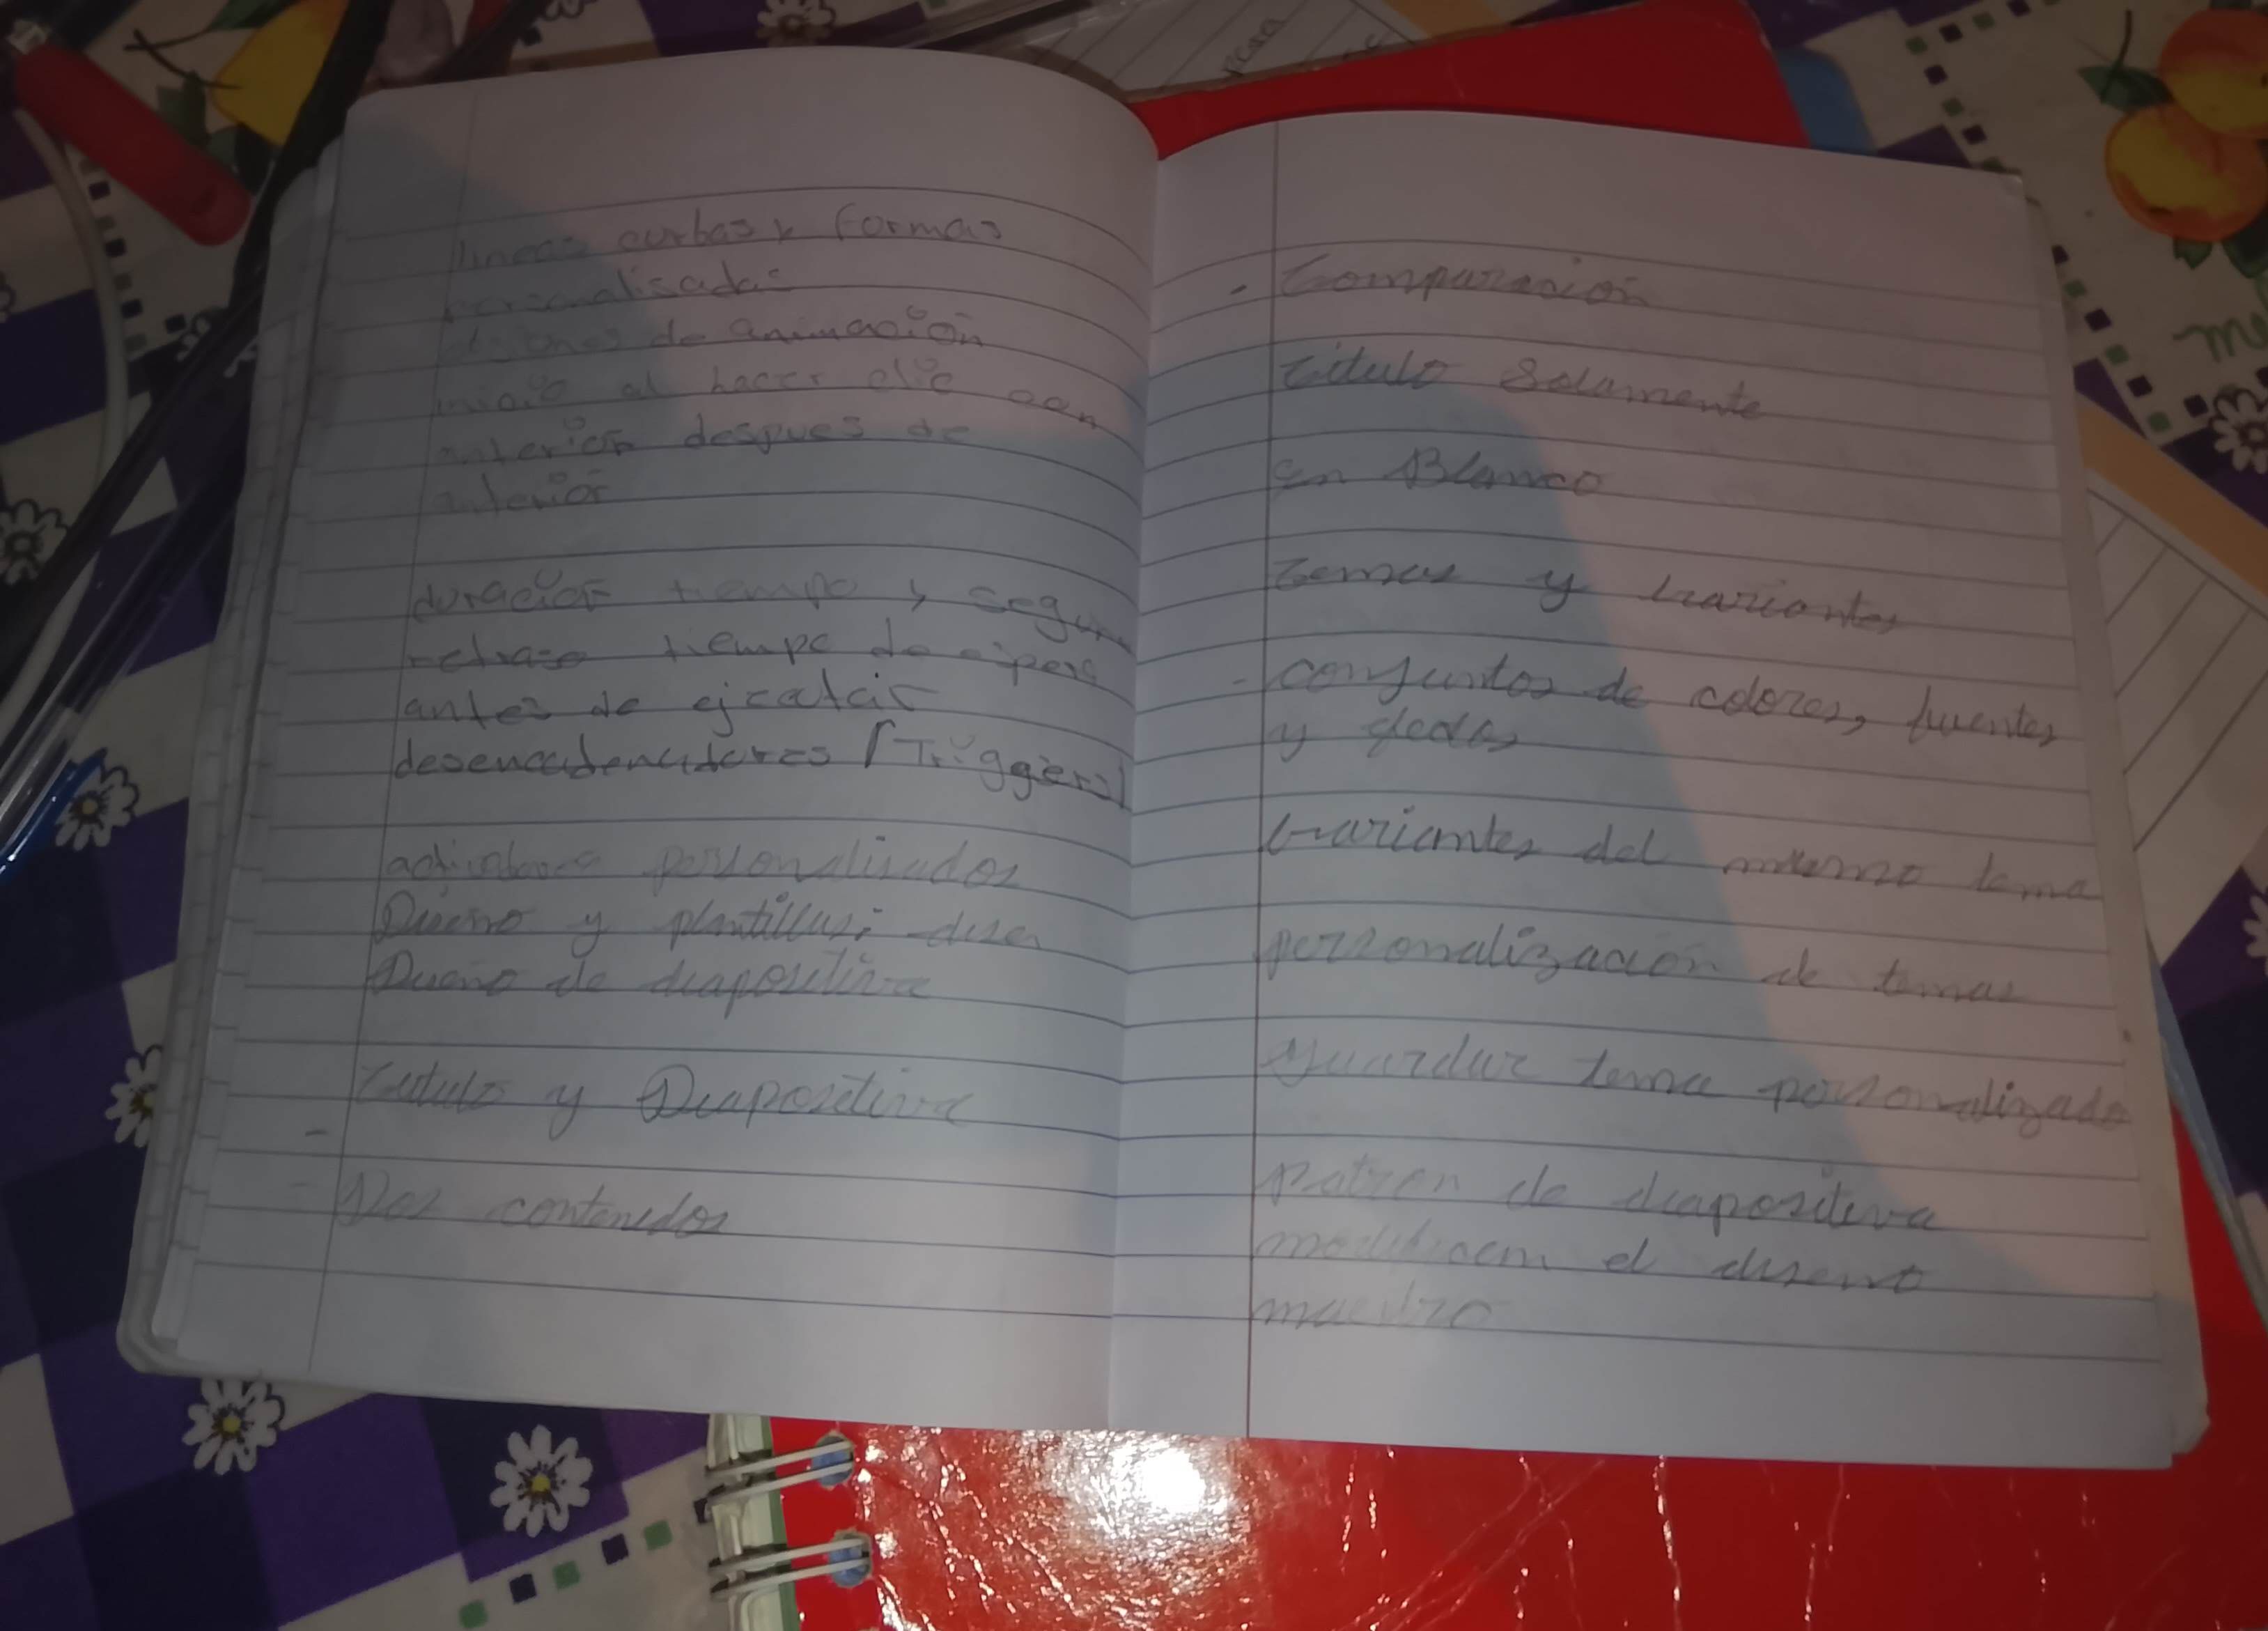 lineas curbas y formas
personalisadas
de animación
inicio al hacer clic con
anterior despues de
anterior
duración tiempo y segun
retraso tiempo de espera
antes de ejcatcir
desencadenadores (Triggers)
activadores personalisados
Diseño y plantillas; diseñ
Diseño de diapositiva
titulo y Diapositiva
- Dos contenidos
- Comparacion
titulo Solamente
en Blanco
temas y variantes
- conjuntos de colores, fuentes
y efectos
variantes del mismo tema
personalización de temas
guardar tema personalizado
patron de diapositiva
modificacin el diseño
maestro